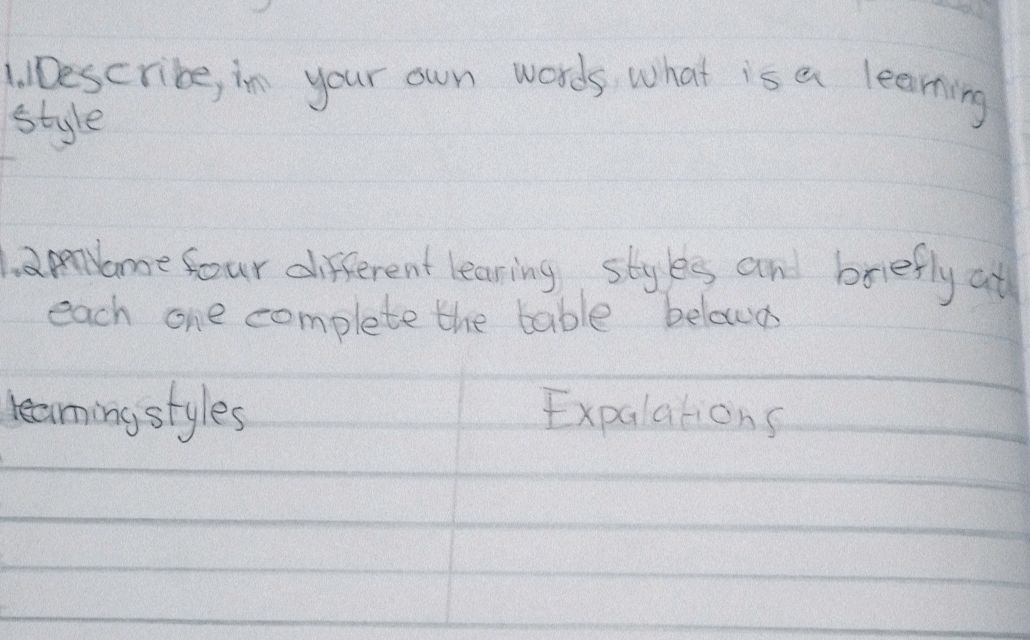 1.1 Describe, in your own words, what is a learning
style
1.2 Name four different learing styles and briefly at
each one complete the table below
learning styles Expalations